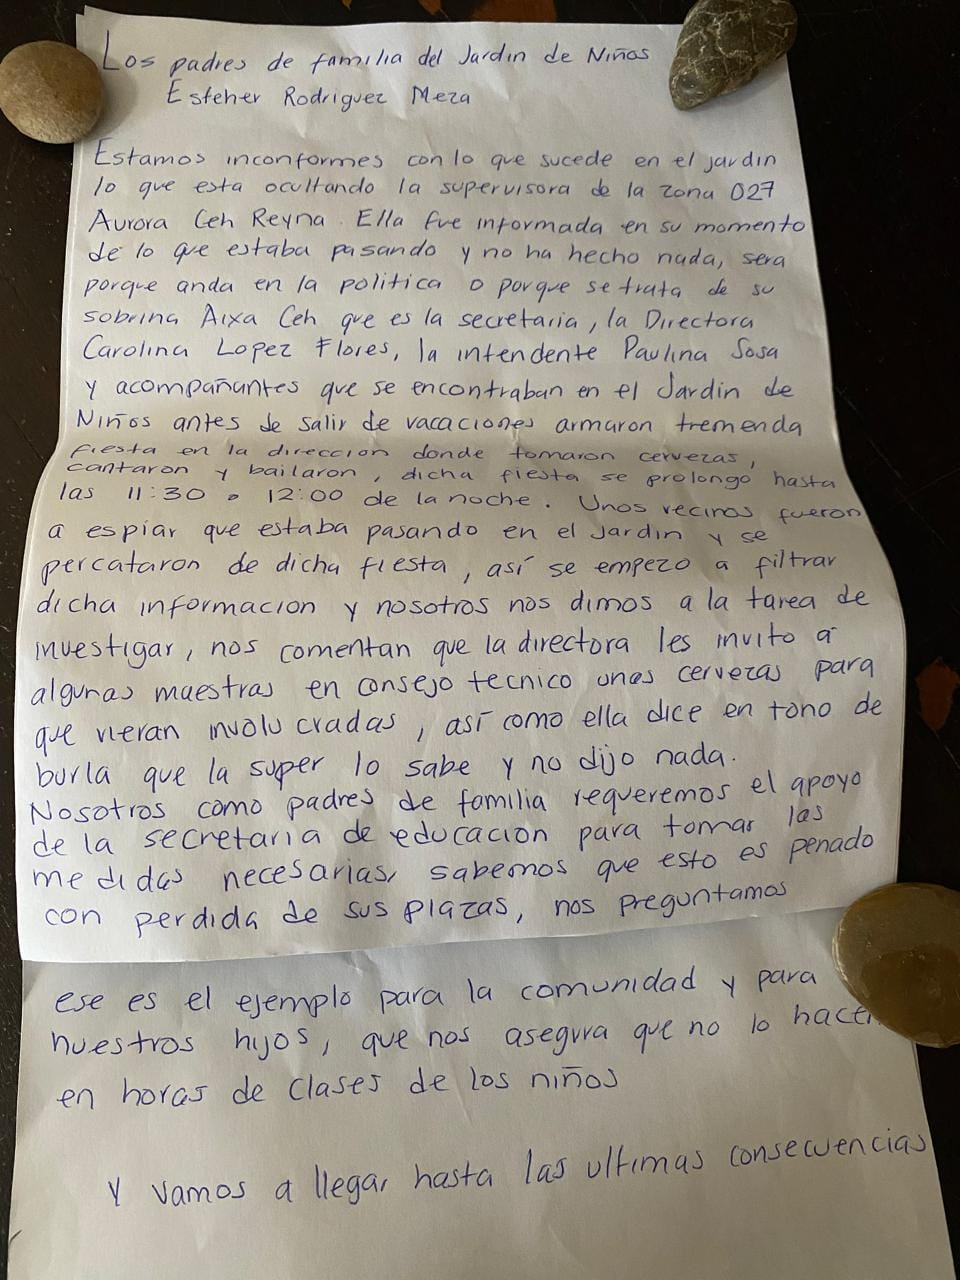 Los padres de familia del Jardin de Niños
Esteher Rodriguez Meza
Estamos inconformes con lo que sucede en el jardin
lo que esta ocultando la supervisora de la zona 027
Aurora Ceh Reyna. Ella fue informada en su momento
de lo que estaba pasando y no ha hecho nada, sera
porque anda en la politica o porque se trata de su
sobrina Aixa Ceh que es la secretaria, la Directora
Carolina Lopez Flores, la intendente Paulina Sosa
y acompañantes que se encontraban en el Jardin de
Niños antes de salir de vacaciones armaron tremenda
fiesta en la direccion donde tomaron cervezas,
cantaron y bailaron, dicha fiesta se prolongo hasta
las 11:30 o 12:00 de la noche. Unos vecinos fueron
a espiar que estaba pasando en el Jardin y se
percataron de dicha fiesta, así se empezo a filtrar
dicha informacion y nosotros nos dimos a la tarea de
investigar, nos comentan que la directora les invito a
algunas maestras en consejo tecnico unas cervezas para
que vieran involucradas, así como ella dice en tono de
burla que la super lo sabe y no dijo nada.
Nosotros como padres de familia requeremos el apoyo
de la secretaria de educacion para tomar las
medidas necesarias, sabemos que esto es penado
con perdida de sus plazas, nos preguntamos
ese es el ejemplo para la comunidad y para
nuestros hijos, que nos asegura que no lo hacen
en horas de clases de los niños
Y vamos a llegar hasta las ultimas consecuencias